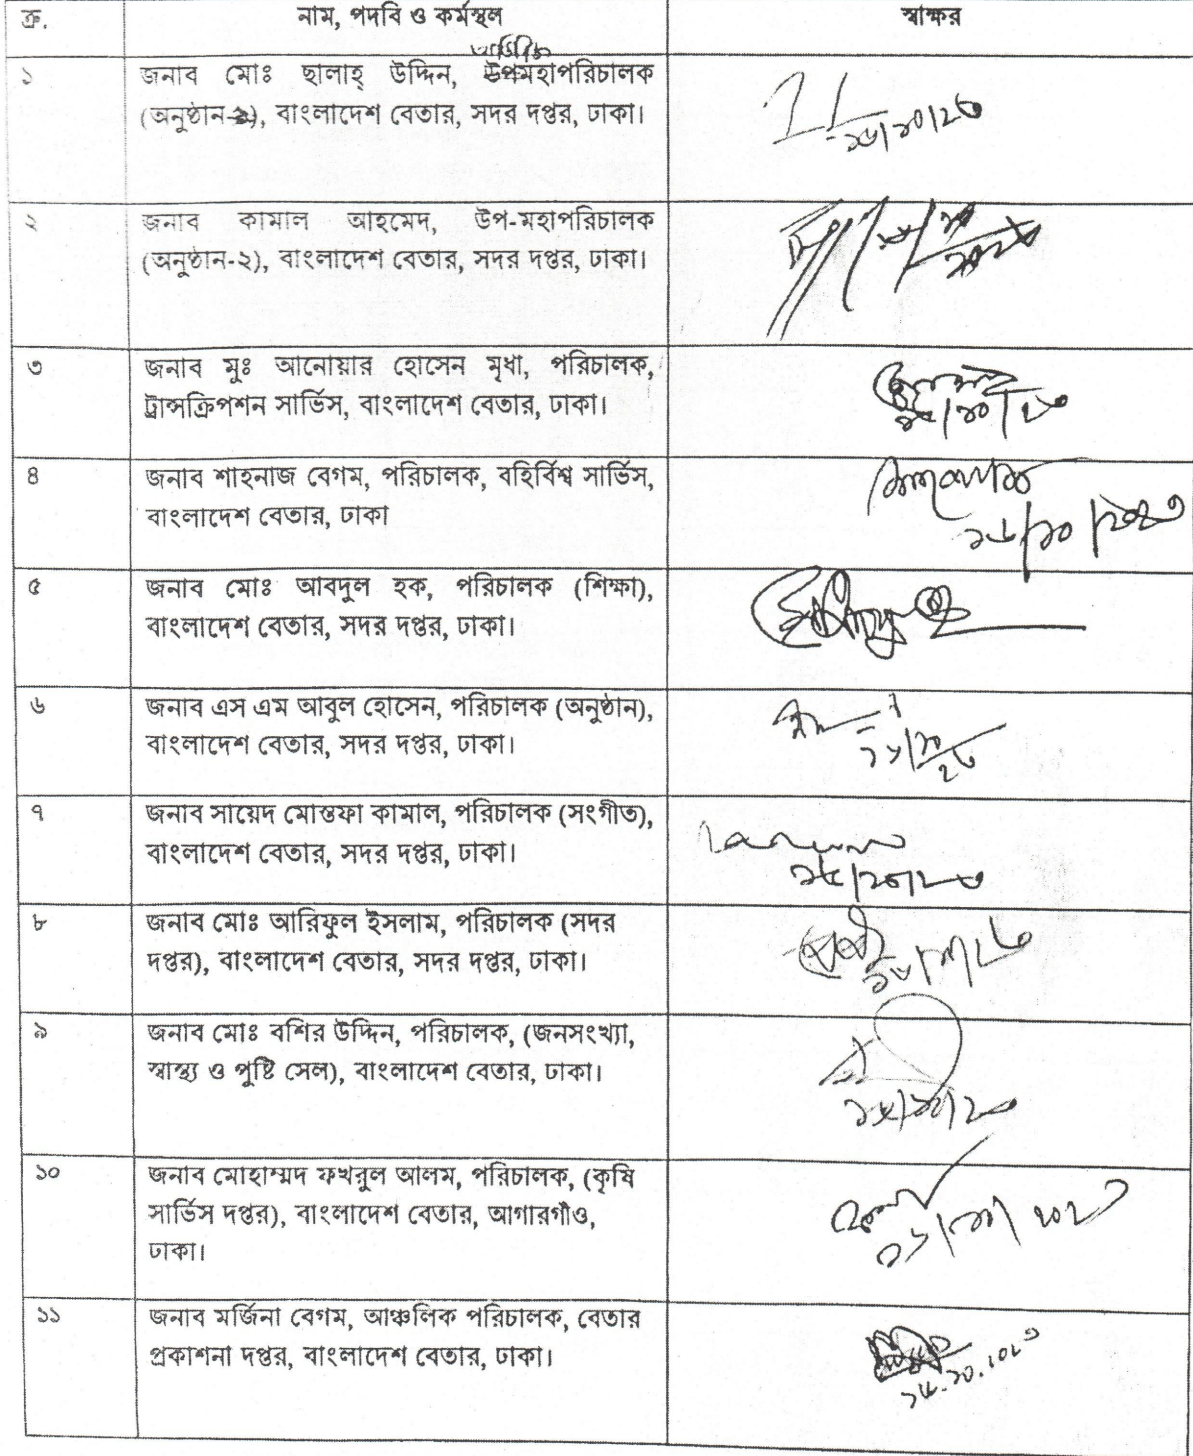 ক্র. নাম, পদবি ও কর্মস্থল স্বাক্ষর
১ জনাব মোঃ ছালাহ্ উদ্দিন, উপমহাপরিচালক
(অনুষ্ঠান-১), বাংলাদেশ বেতার, সদর দপ্তর, ঢাকা।
২ জনাব কামাল আহমেদ, উপ-মহাপরিচালক
(অনুষ্ঠান-২), বাংলাদেশ বেতার, সদর দপ্তর, ঢাকা।
৩ জনাব মুঃ আনোয়ার হোসেন মৃধা, পরিচালক,
ট্রান্সক্রিপশন সার্ভিস, বাংলাদেশ বেতার, ঢাকা।
৪ জনাব শাহনাজ বেগম, পরিচালক, বহির্বিশ্ব সার্ভিস,
বাংলাদেশ বেতার, ঢাকা
১৬/১০/২০২৩
৫ জনাব মোঃ আবদুল হক, পরিচালক (শিক্ষা),
বাংলাদেশ বেতার, সদর দপ্তর, ঢাকা।
৬ জনাব এস এম আবুল হোসেন, পরিচালক (অনুষ্ঠান),
বাংলাদেশ বেতার, সদর দপ্তর, ঢাকা।
৭ জনাব সায়েদ মোস্তফা কামাল, পরিচালক (সংগীত),
বাংলাদেশ বেতার, সদর দপ্তর, ঢাকা।
৮ জনাব মোঃ আরিফুল ইসলাম, পরিচালক (সদর
দপ্তর), বাংলাদেশ বেতার, সদর দপ্তর, ঢাকা।
৯ জনাব মোঃ বশির উদ্দিন, পরিচালক, (জনসংখ্যা,
স্বাস্থ্য ও পুষ্টি সেল), বাংলাদেশ বেতার, ঢাকা।
১০ জনাব মোহাম্মদ ফখরুল আলম, পরিচালক, (কৃষি
সার্ভিস দপ্তর), বাংলাদেশ বেতার, আগারগাঁও,
ঢাকা।
১১ জনাব মর্জিনা বেগম, আঞ্চলিক পরিচালক, বেতার
প্রকাশনা দপ্তর, বাংলাদেশ বেতার, ঢাকা।